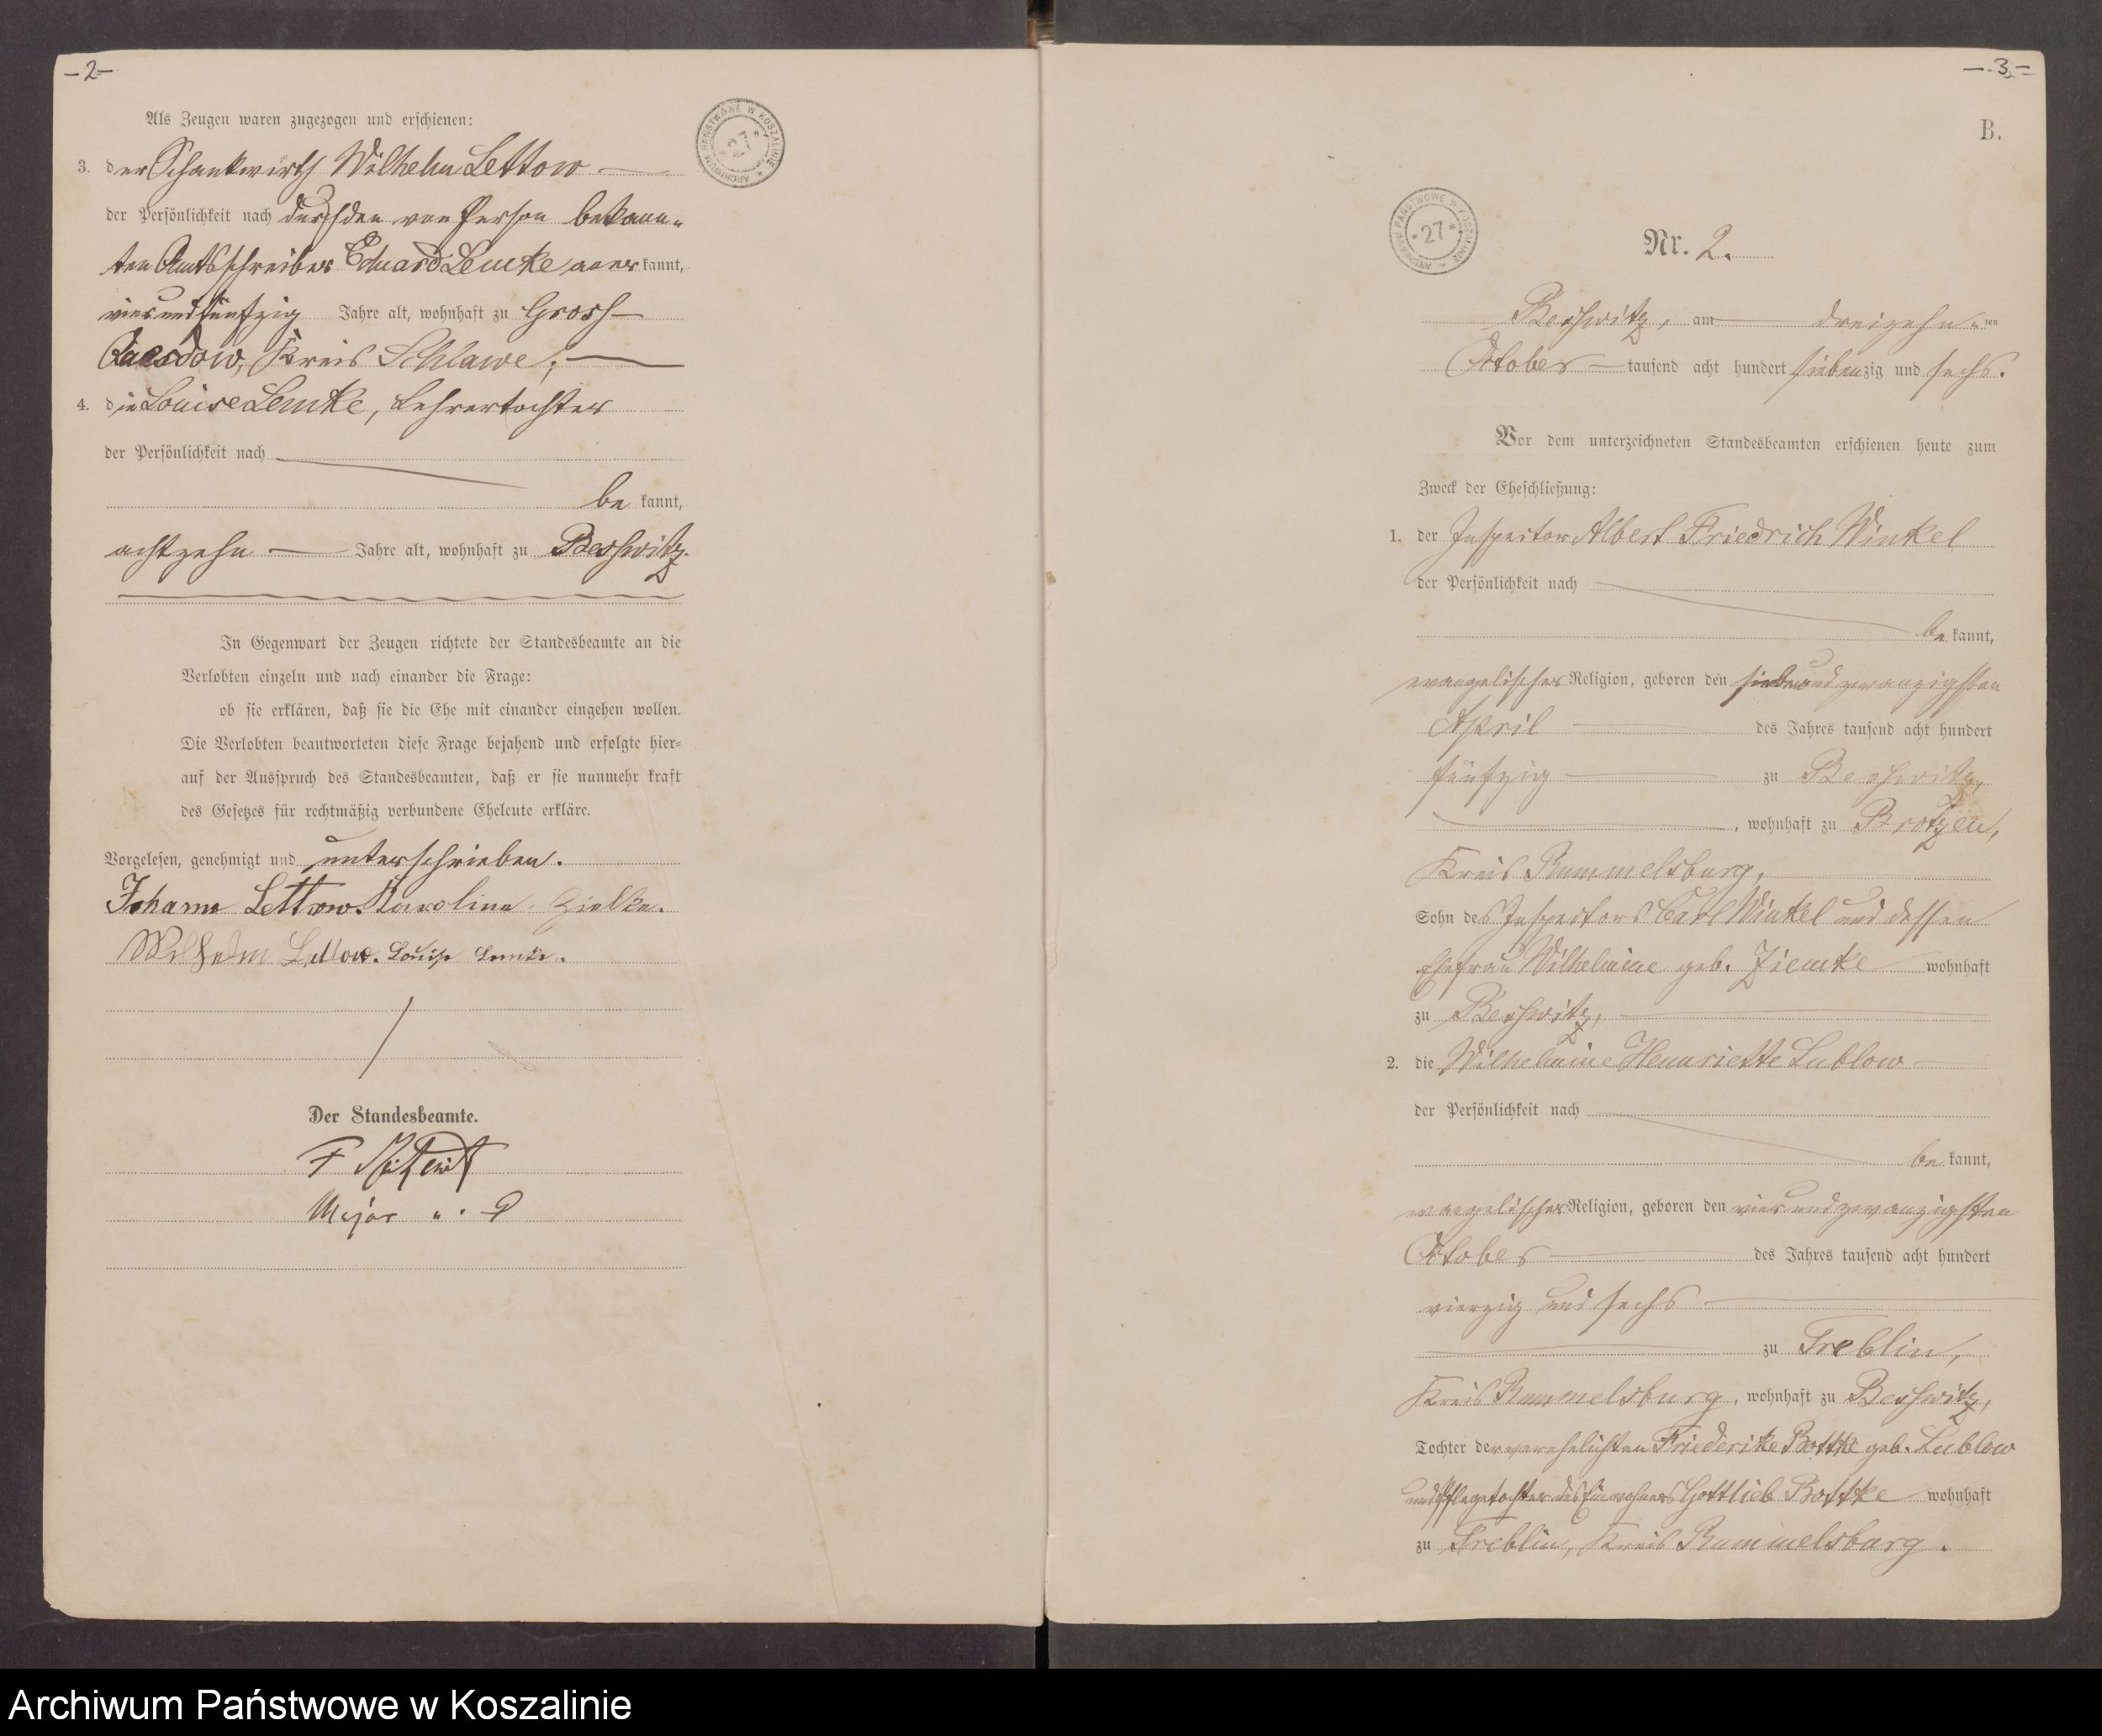 -2-
Als Zeugen waren zugezogen und erschienen:
3. der Schankwirth Wilhelm Lettow
der Persönlichkeit nach durch den von Person bekann-
ten Amtsschreiber Eduard Lemke anerkannt,
vierundfünfzig Jahre alt, wohnhaft zu Gross-
Quesdow, Kreis Schlawe;
4. die Louise Lemke, Lehrertochter
der Persönlichkeit nach
be kannt,
achtzehn Jahre alt, wohnhaft zu Beßwitz.
In Gegenwart der Zeugen richtete der Standesbeamte an die
Verlobten einzeln und nach einander die Frage:
ob sie erklären, daß sie die Ehe mit einander eingehen wollen.
Die Verlobten beantworteten diese Frage bejahend und erfolgte hier-
auf der Ausspruch des Standesbeamten, daß er sie nunmehr kraft
des Gesetzes für rechtmäßig verbundene Eheleute erkläre.
Vorgelesen, genehmigt und unterschrieben.
Johann Lettow. Karoline Zielke.
Wilhelm Lettow. Louise Lemke.
Der Standesbeamte.
F
Major
ARCHIWUM PAŃSTWOWE W KOSZALINIE
* 27 *
-3-
B.
ARCHIWUM PAŃSTWOWE W KOSZALINIE
* 27 *
Nr. 2.
Beßwitz, am dreizehn-ten
October tausend acht hundert siebenzig und sechs.
Vor dem unterzeichneten Standesbeamten erschienen heute zum
Zweck der Eheschließung:
1. der Inspector Albert Friedrich Winkel
der Persönlichkeit nach
be kannt,
evangelischer Religion, geboren den siebenundzwanzigsten
April des Jahres tausend acht hundert
fünfzig zu Beßwitz,
, wohnhaft zu Brotzen,
Kreis Rummelsburg,
Sohn des Inspectors Carl Winkel und dessen
Ehefrau Wilhelmine geb. Ziemke wohnhaft
zu Beßwitz,
2. die Wilhelmine Henriette Lublow
der Persönlichkeit nach
be kannt,
evangelischer Religion, geboren den vierundzwanzigsten
October des Jahres tausend acht hundert
vierzig und sechs
zu Treblin,
Kreis Rummelsburg, wohnhaft zu Beßwitz,
Tochter der verehelichten Friederike Bottke geb. Lublow
und Pflegetochter des Einwohners Gottlieb Bottke wohnhaft
zu Treblin, Kreis Rummelsburg.
Archiwum Państwowe w Koszalinie